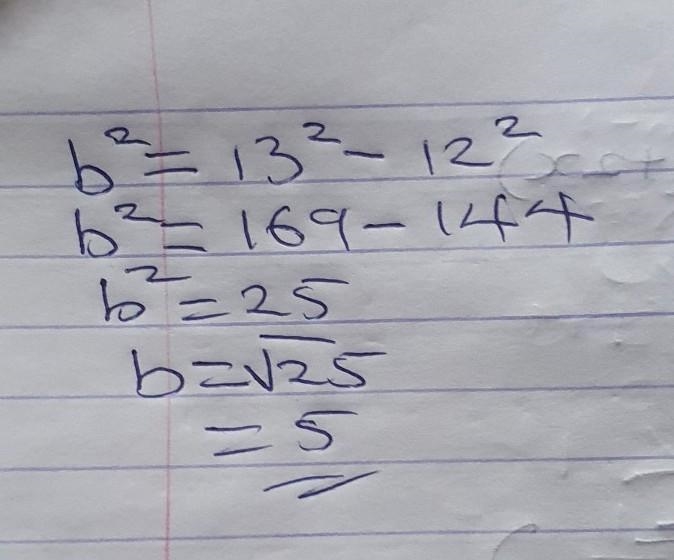 b² = 13² - 12²
b² = 169 - 144
b² = 25
b = √25
= 5